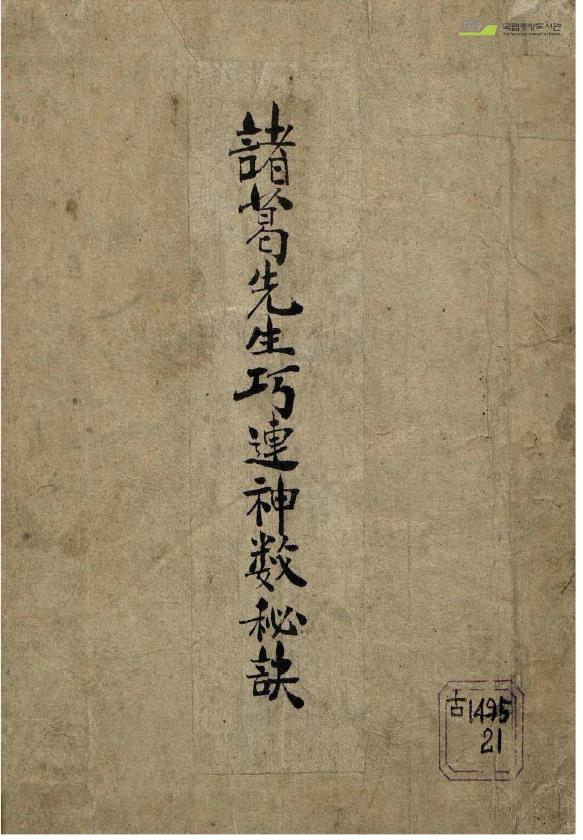 국립중앙도서관
THE NATIONAL LIBRARY OF KOREA
諸葛先生巧連神数秘訣
古1495
21